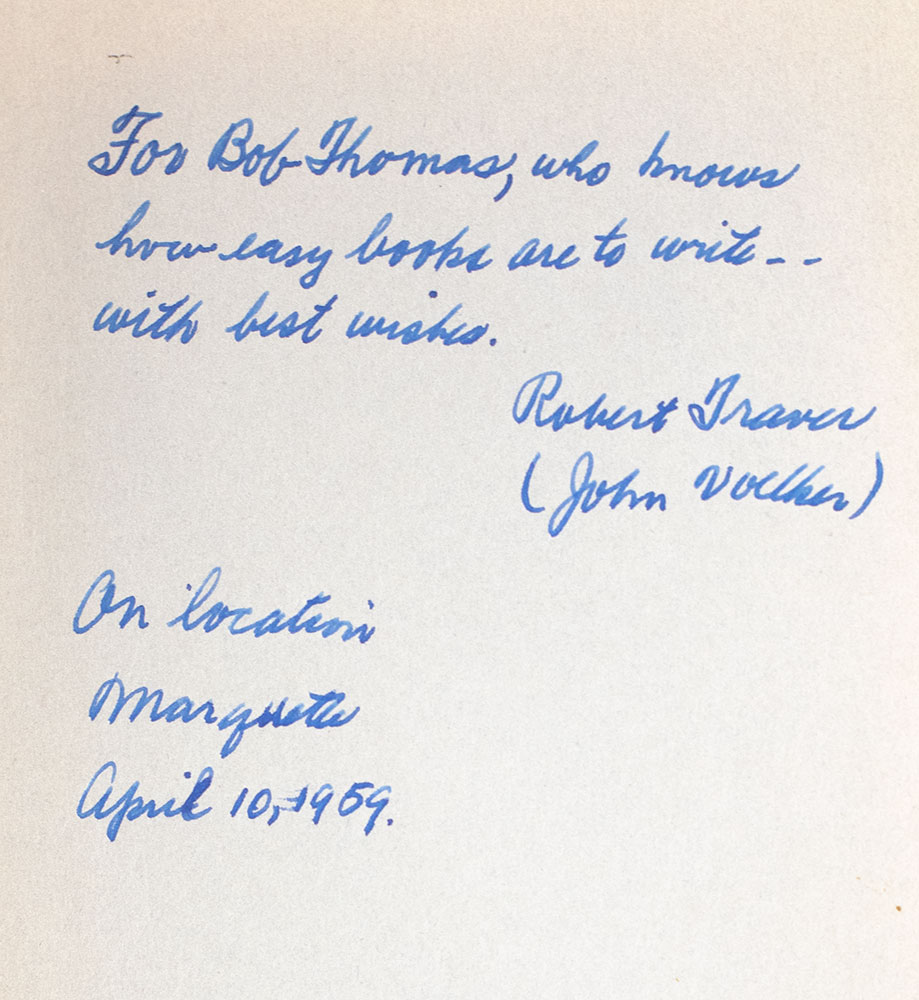 For Bob Thomas, who knows
how easy books are to write--
with best wishes.
Robert Traver
(John Voelker)
On location
Marquette
April 10, 1959.